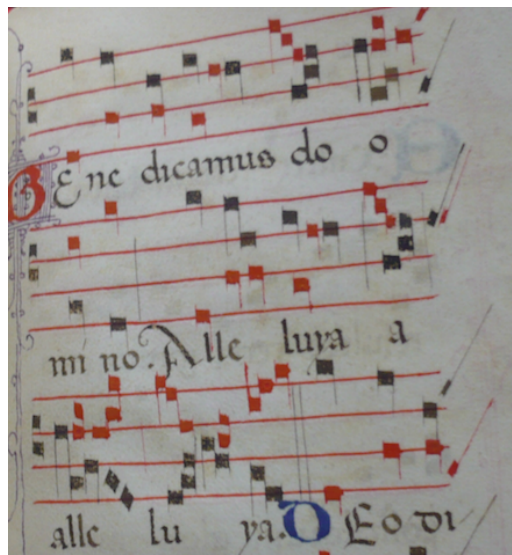 BEnedicamus do o
mi no. Alle luya a
alle lu ya. DEo di